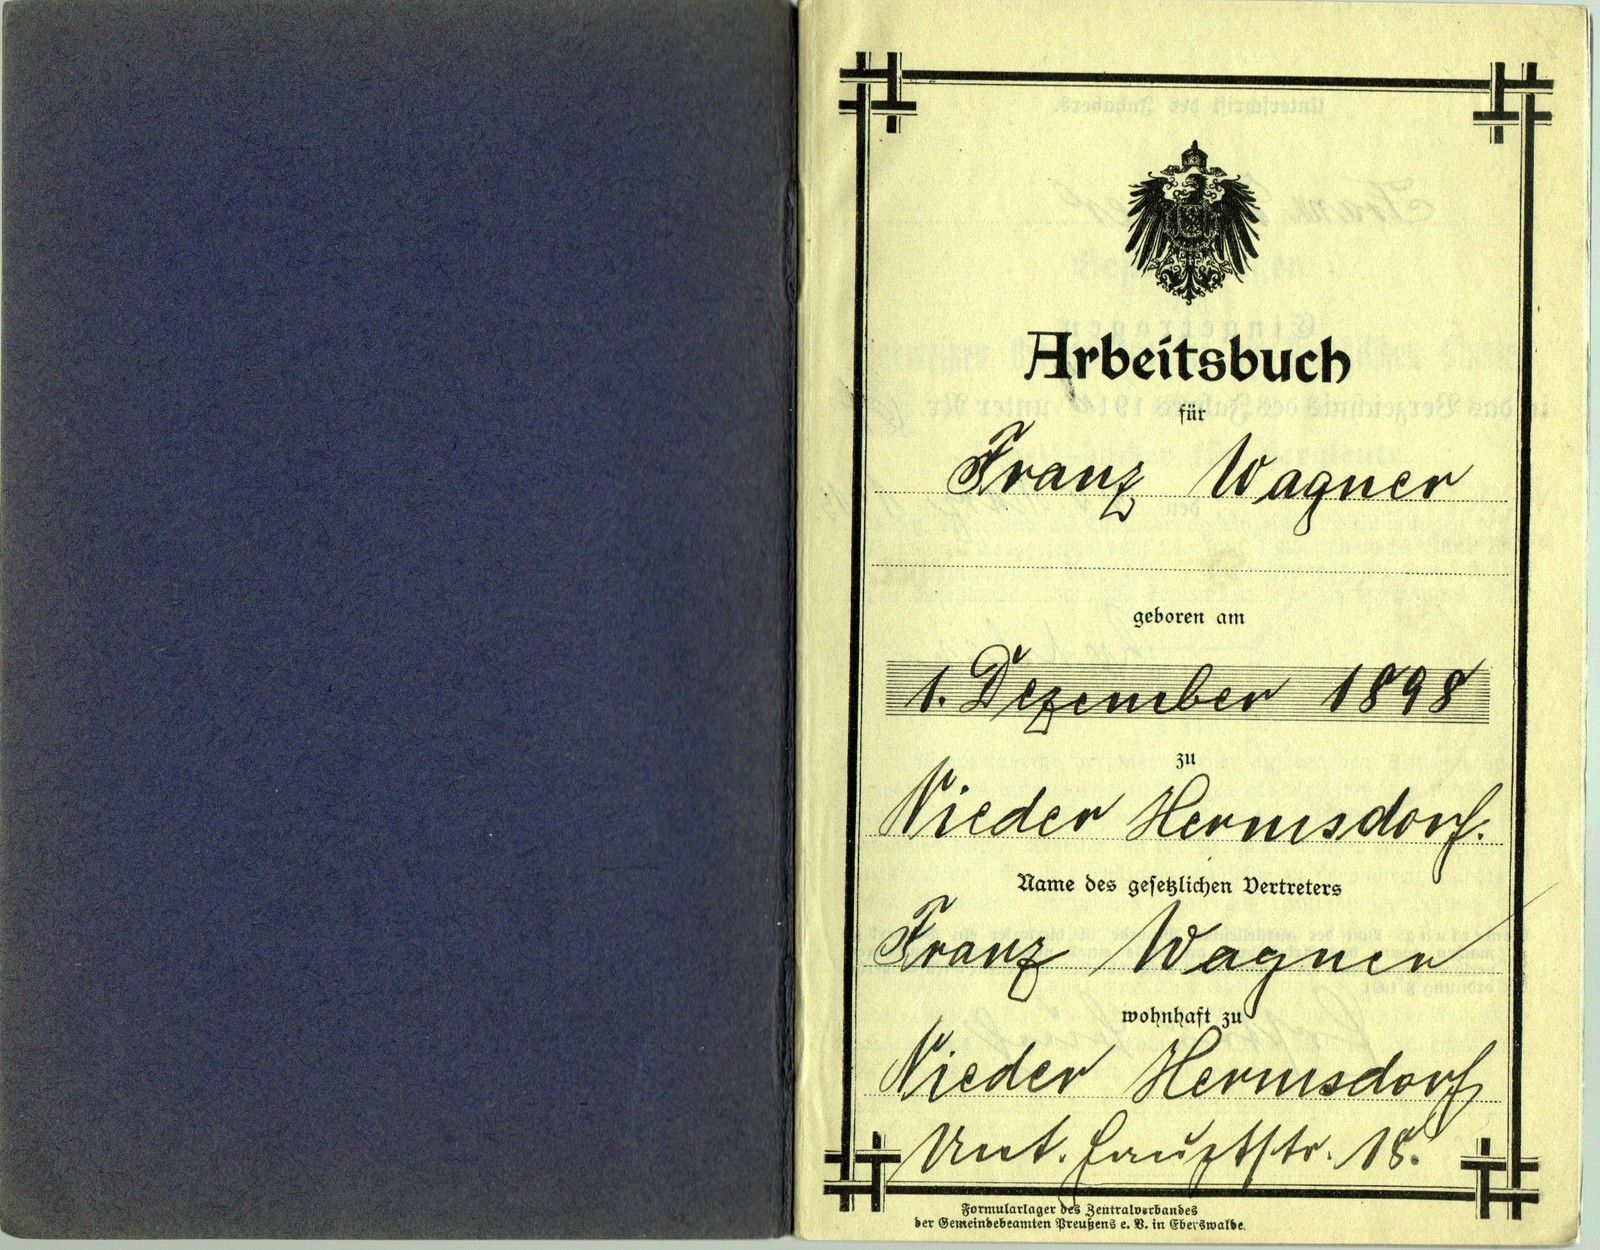 Arbeitsbuch
für
Franz Wagner
geboren am
1. Dezember 1898
zu
Nieder Hermsdorf.
Name des gesetzlichen Vertreters
Franz Wagner
wohnhaft zu
Nieder Hermsdorf
Unt. Hauptstr. 18.
Formularlager des Zentralverbandes
der Gemeindebeamten Preußens e. V. in Eberswalde.